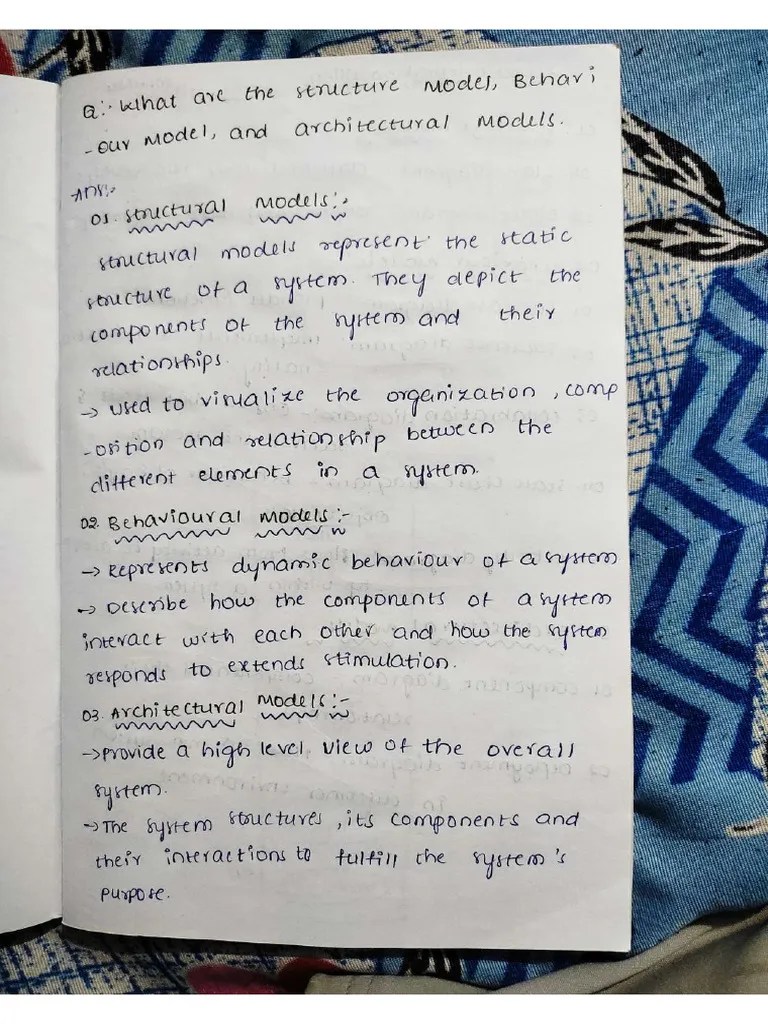 Q:- What are the structure model, Behavi
-our model, and architectural models.
Ans:-
01. Structural Models:-
structural models represent the static
structure of a system. They depict the
components of the system and their
relationships.
→ used to visualize the organization, comp
-osition and relationship between the
different elements in a system.
02. Behavioural Models:-
→ Represents dynamic behaviour of a system
→ Describe how the components of a system
interact with each other and how the system
responds to extends stimulation.
03. Architectural Models:-
→ provide a high level view of the overall
system.
→ The system structures, its components and
their interactions to fulfill the system's
purpose.